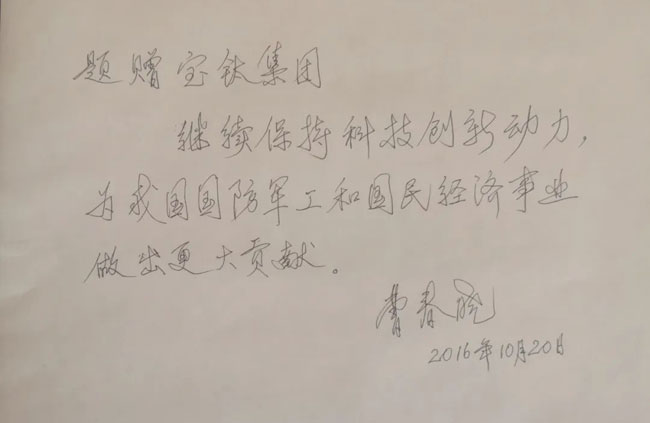 题赠宝钛集团
继续保持科技创新动力，
为我国国防军工和国民经济事业
做出更大贡献。
曹春晓
2016年10月20日